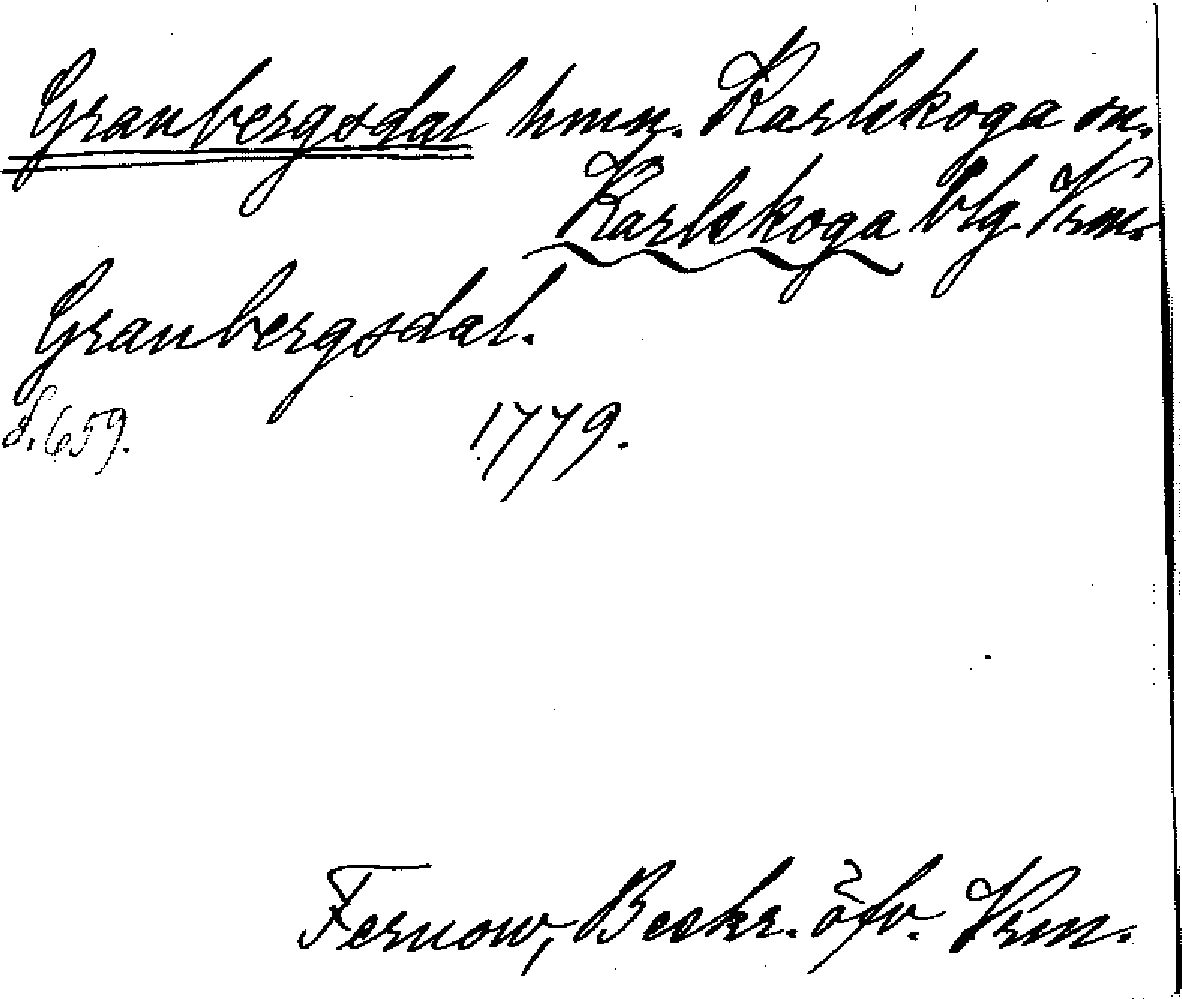 Granbergsdal hmn. Karlskoga sn.
Karlskoga blg. Vrm.
Granbergsdal.
S. 659. 1779.
Fernow, Beskr. öfv. Vrm.